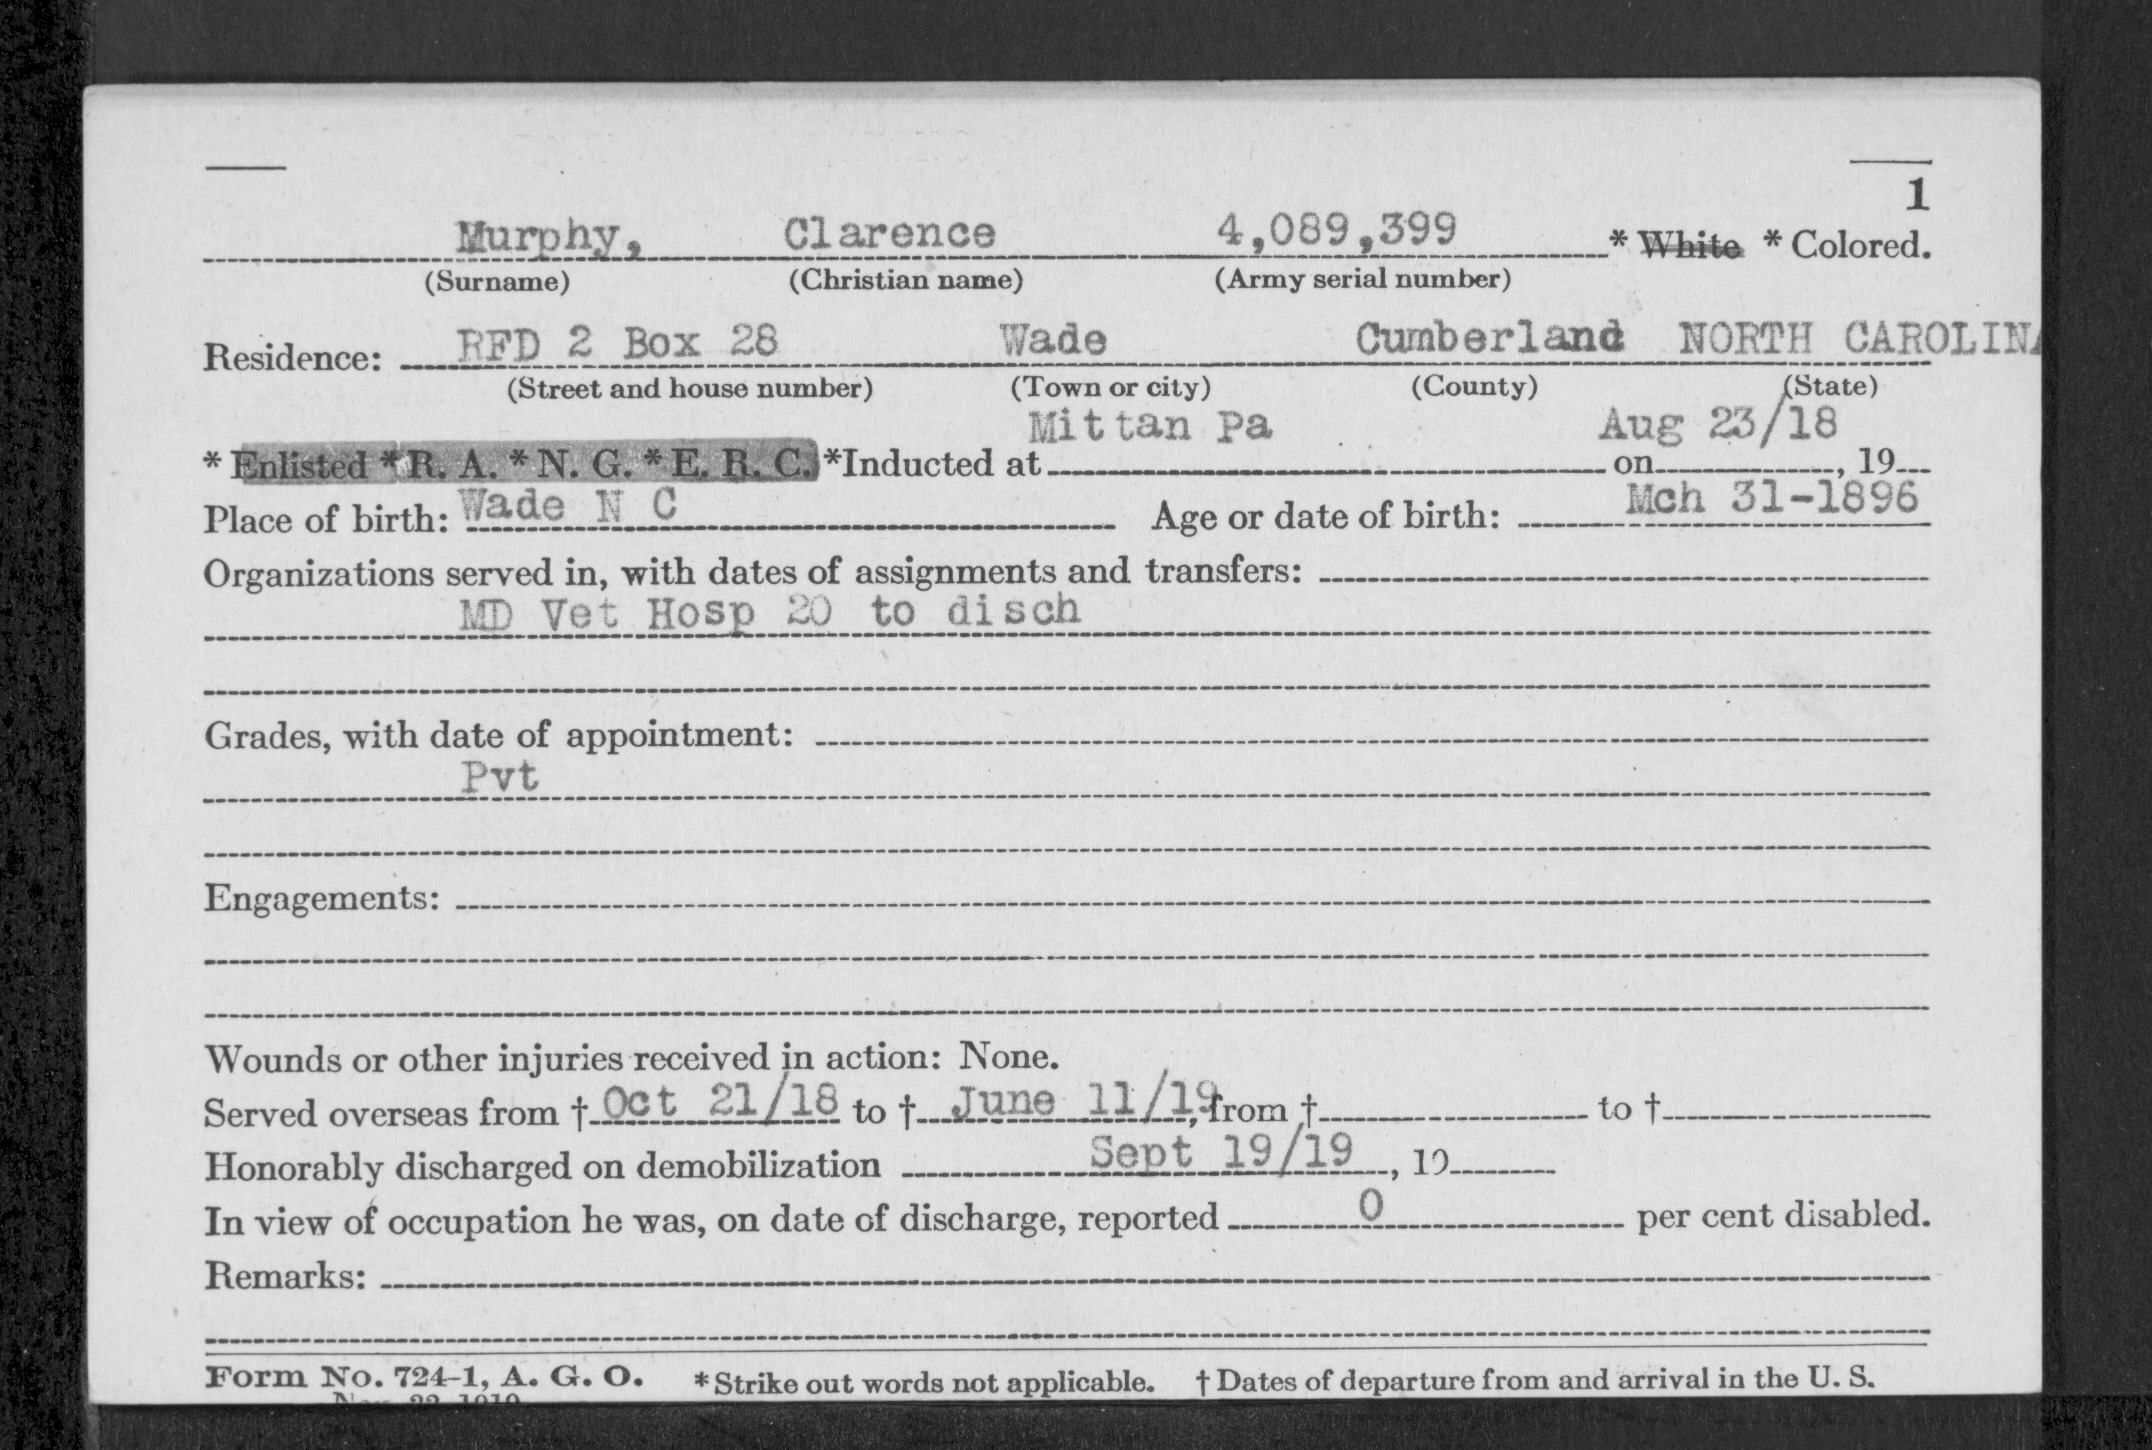 1
Murphy, Clarence 4,089,399 * White * Colored.
(Surname) (Christian name) (Army serial number)
Residence: RFD 2 Box 28 Wade Cumberland NORTH CAROLINA
(Street and house number) (Town or city) (County) (State)
Mittan Pa Aug 23/18
* Enlisted * R. A. * N. G. * E. R. C. *Inducted at on , 19
Place of birth: Wade N C Age or date of birth: Mch 31-1896
Organizations served in, with dates of assignments and transfers:
MD Vet Hosp 20 to disch
Grades, with date of appointment:
Pvt
Engagements:
Wounds or other injuries received in action: None.
Served overseas from † Oct 21/18 to † June 11/19, from † to †
Honorably discharged on demobilization Sept 19/19, 19
In view of occupation he was, on date of discharge, reported 0 per cent disabled.
Remarks:
Form No. 724-1, A. G. O. * Strike out words not applicable. † Dates of departure from and arrival in the U. S.